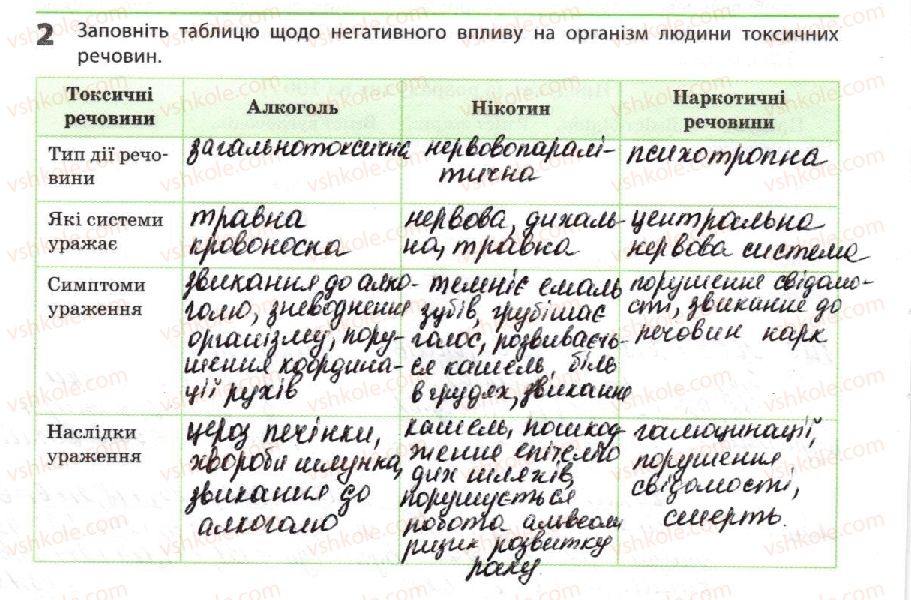 2 Заповніть таблицю щодо негативного впливу на організм людини токсичних
речовин.
Токсичні
речовини
Алкоголь
Нікотин
Наркотичні
речовини
Тип дії речо-
вини
загальнотоксична
нервовопаралі-
тична
психотропна
Які системи
уражає
травна
кровоносна
нервова, дихаль-
на, травна
центральна
нервова система
Симптоми
ураження
звикання до алко-
голю, зневоднення
організму, пору-
шення координа-
ції рухів
темніє емаль
зубів, грубішає
голос, розвиваєть-
ся кашель, біль
в грудях, звикання
порушення свідомо-
сті, звикание до
речовин нарк
Наслідки
ураження
цероз печінки,
хвороби шлунка,
звикання до
алкоголю
кашель, пошкод-
ження епітелію
дих шляхів,
порушується
робота альвеол
ризик розвитку
раку
галюцинації,
порушення
свідомості,
смерть.
vshkole.com